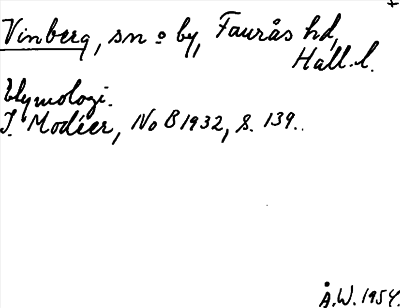 Vinberg, sn o by, Faurås hd,
Hall. l.
Etymologi.
I. Modéer, NoB 1932, s. 139.
Å.W. 1954.